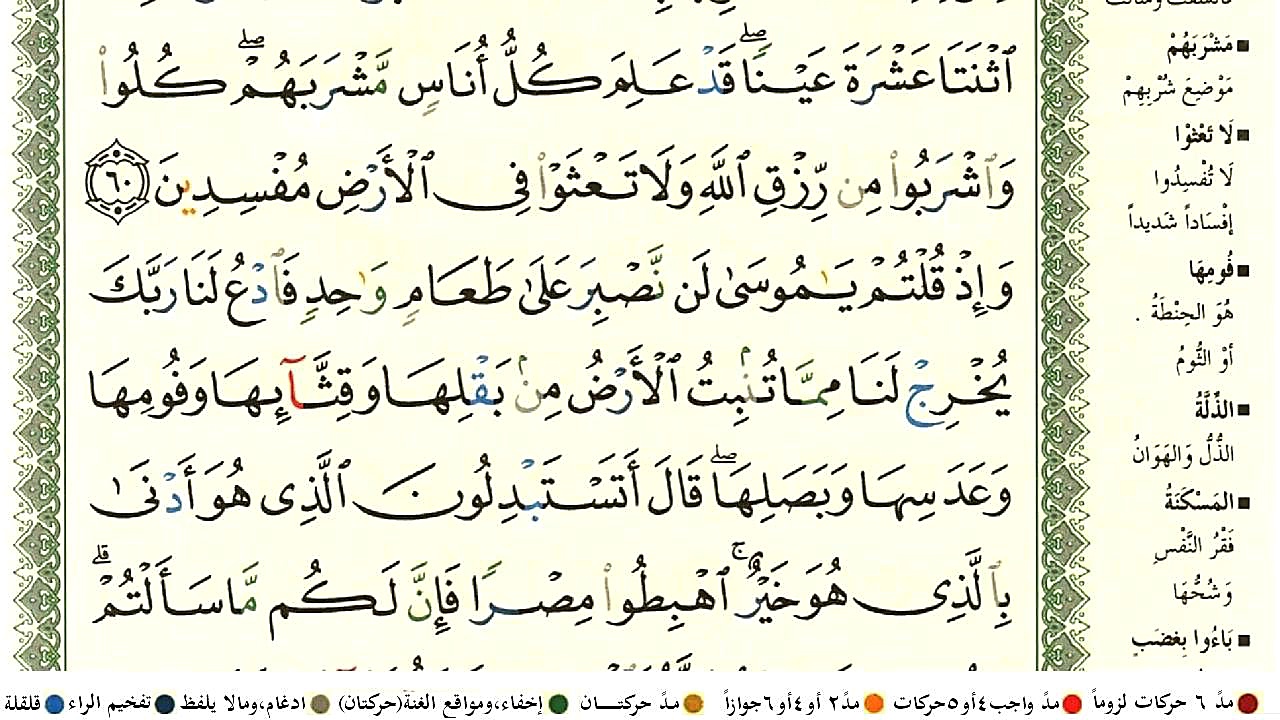 ٱثْنَتَا عَشْرَةَ عَيْنًاۖ قَدْ عَلِمَ كُلُّ أُنَاسٍ مَّشْرَبَهُمْۖ كُلُوا۟
وَٱشْرَبُوا۟ مِن رِّزْقِ ٱللَّهِ وَلَا تَعْثَوْا۟ فِى ٱلْأَرْضِ مُفْسِدِينَ ٦٠
وَإِذْ قُلْتُمْ يَـٰمُوسَىٰ لَن نَّصْبِرَ عَلَىٰ طَعَامٍ وَٰحِدٍ فَٱدْعُ لَنَا رَبَّكَ
يُخْرِجْ لَنَا مِمَّا تُنۢبِتُ ٱلْأَرْضُ مِنۢ بَقْلِهَا وَقِثَّآئِهَا وَفُومِهَا
وَعَدَسِهَا وَبَصَلِهَاۖ قَالَ أَتَسْتَبْدِلُونَ ٱلَّذِى هُوَ أَدْنَىٰ
بِٱلَّذِى هُوَ خَيْرٌۚ ٱهْبِطُوا۟ مِصْرًا فَإِنَّ لَكُم مَّا سَأَلْتُمْۗ
■ مَشْرَبَهُمْ
مَوْضِعَ شُرْبِهِمْ
■ لَا تَعْثَوْا
لَا تُفْسِدُوا
إفْسَاداً شَدِيداً
■ فُومِهَا
هُوَ الحِنْطَةُ .
أوْ الثُّومُ
■ الذِّلَّةُ
الذُّلُّ وَالهَوَانُ
■ المَسْكَنَةُ
فَقْرُ النَّفْسِ
وَشُحُّهَا
■ بَاءُوا بِغَضَبٍ
مدّ ٦ حركات لزوماً ● مدّ واجب ٤ أو ٥ حركات ● مدّ ٢ أو ٤ أو ٦ جوازاً ● مدّ حركتـــان ● إخفاء، ومواقع الغنة (حركتان) ● ادغام، ومالا يلفظ ● تفخيم الراء ● قلقلة